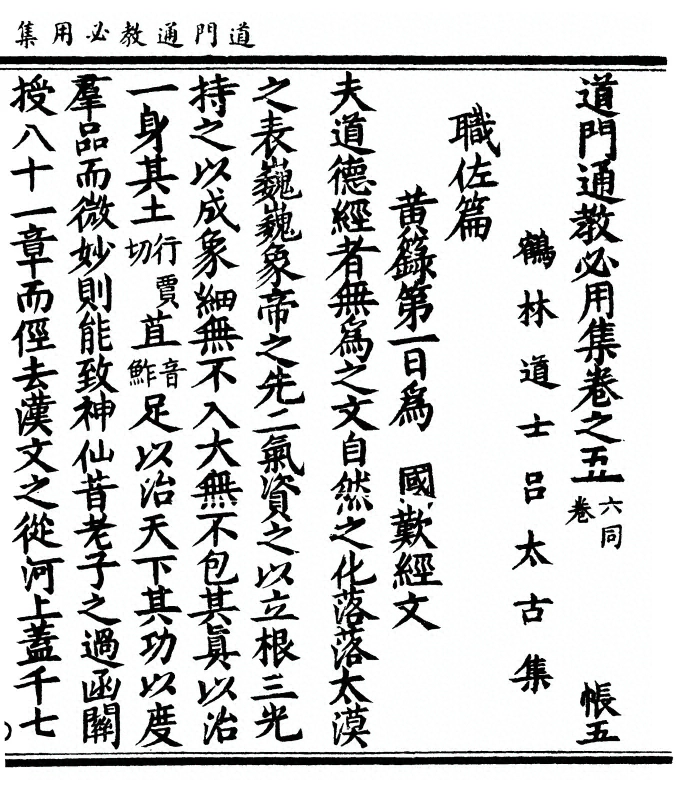 道門通教必用集
道門通教必用集卷之五 六同卷 帳五
鶴林道士呂太古集
職佐篇
黄籙第一日為 國歎經文
夫道德經者無為之文自然之化落落太漠
之表巍巍象帝之先二氣資之以立根三光
持之以成象細無不入大無不包其真以治
一身其土行賈切苴音鮓足以治天下其功以度
羣品而微妙則能致神仙昔老子之過函關
授八十一章而徑去漢文之從河上蓋千七